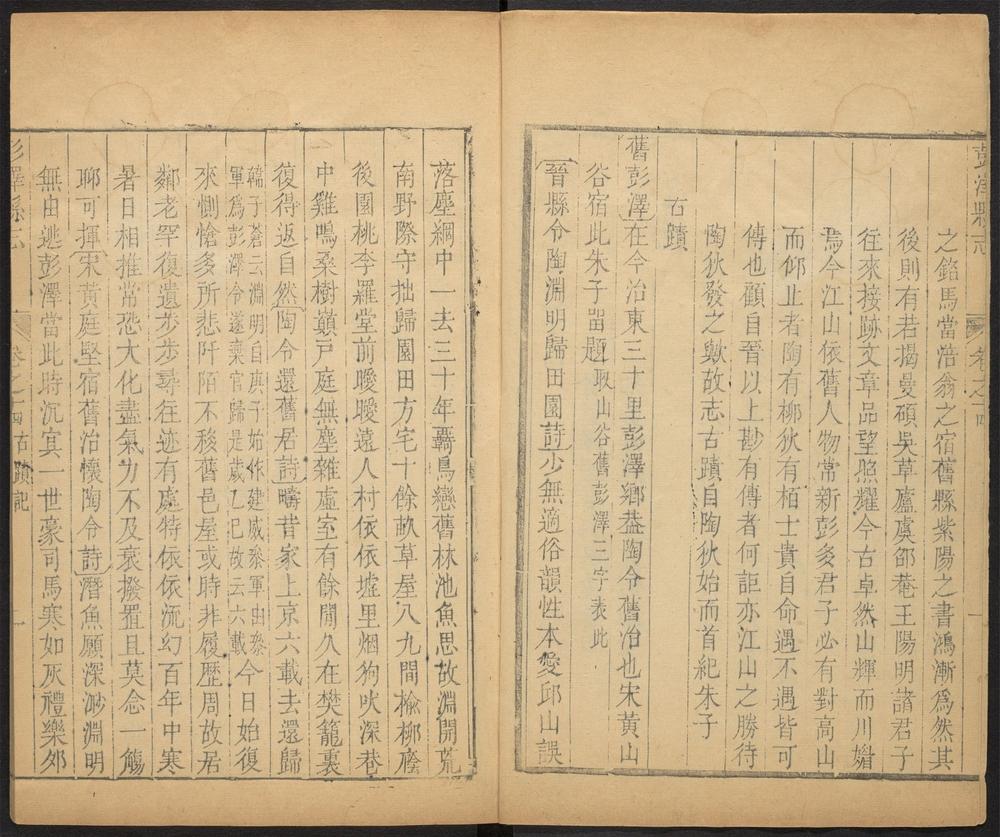 彭澤縣志
卷之四
之銘馬當浩翁之宿舊縣紫陽之書鴻漸爲然其
後則有若揭曼碩吳草廬虞邵菴王陽明諸君子
往來接跡文章品望照耀今古卓然山輝而川媚
焉今江山依舊人物常新彭多君子必有對高山
而仰止者陶有柳狄有栢士貴自命遇不遇皆可
傳也顧自晉以上尠有傳者何詎亦江山之勝待
陶狄發之歟故志古蹟自陶狄始而首紀朱子
古蹟
舊彭澤在今治東三十里彭澤鄉葢陶令舊治也宋黃山
谷宿此朱子畱題取山谷舊彭澤三字表此
晉縣令陶淵明歸田園詩少無適俗韻性本愛邱山誤
落塵網中一去三十年羇鳥戀舊林池魚思故淵開荒
南野際守拙歸園田方宅十餘畝草屋八九間楡柳廕
後園桃李羅堂前曖曖遠人村依依墟里烟狗吠深巷
中雞鳴桑樹巔戸庭無塵雜虛室有餘閒久在樊籠裏
復得返自然陶令還舊居詩疇昔家上京六載去還歸
韓子蒼云淵明自庚子始作建威叅軍由叅
軍爲彭澤令遂棄官歸是歲乙巳故云六載今日始復
來惻愴多所悲阡陌不移舊邑屋或時非履歷周故居
鄰老罕復遺步步尋往迹有處特依依流幻百年中寒
暑日相推常恐大化盡氣力不及衰撥置且莫念一觴
聊可揮宋黃庭堅宿舊治懷陶令詩潛魚願深渺淵明
無由逃彭澤當此時沉冥一世豪司馬寒如灰禮樂夘
彭澤縣志
卷之四古蹟記
一